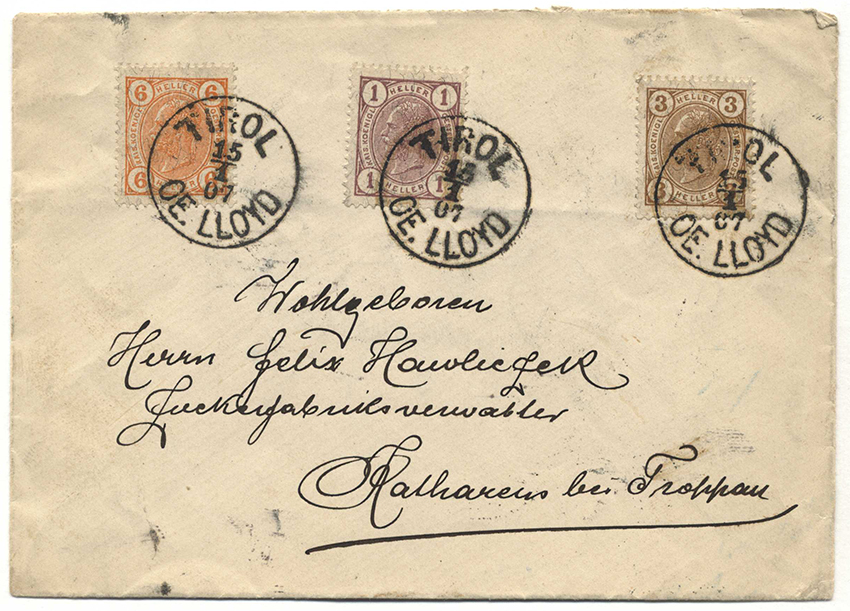 6 HELLER 6
KAIS. KOENIGL.
6 HELLER 6
1 HELLER 1
KAIS. KOENIGL.
1 HELLER 1
3 HELLER 3
KAIS. KOENIGL.
3 HELLER
TIROL
15
1
07
OE. LLOYD
TIROL
15
1
07
OE. LLOYD
TIROL
15
1
07
OE. LLOYD
Wohlgeboren
Herrn Felix Hawliczek
Zuckerfabriksverwalter
Katharein bei Troppau